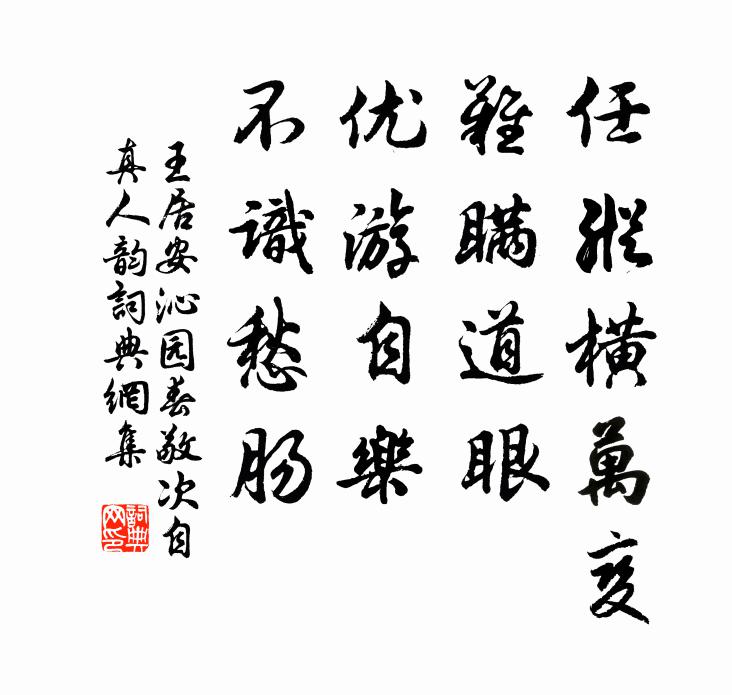 任縱橫萬变
難瞞道眼
优游自樂
不識愁肠
王居安沁园春敬次自
真人韵詞典網集
詞典网印